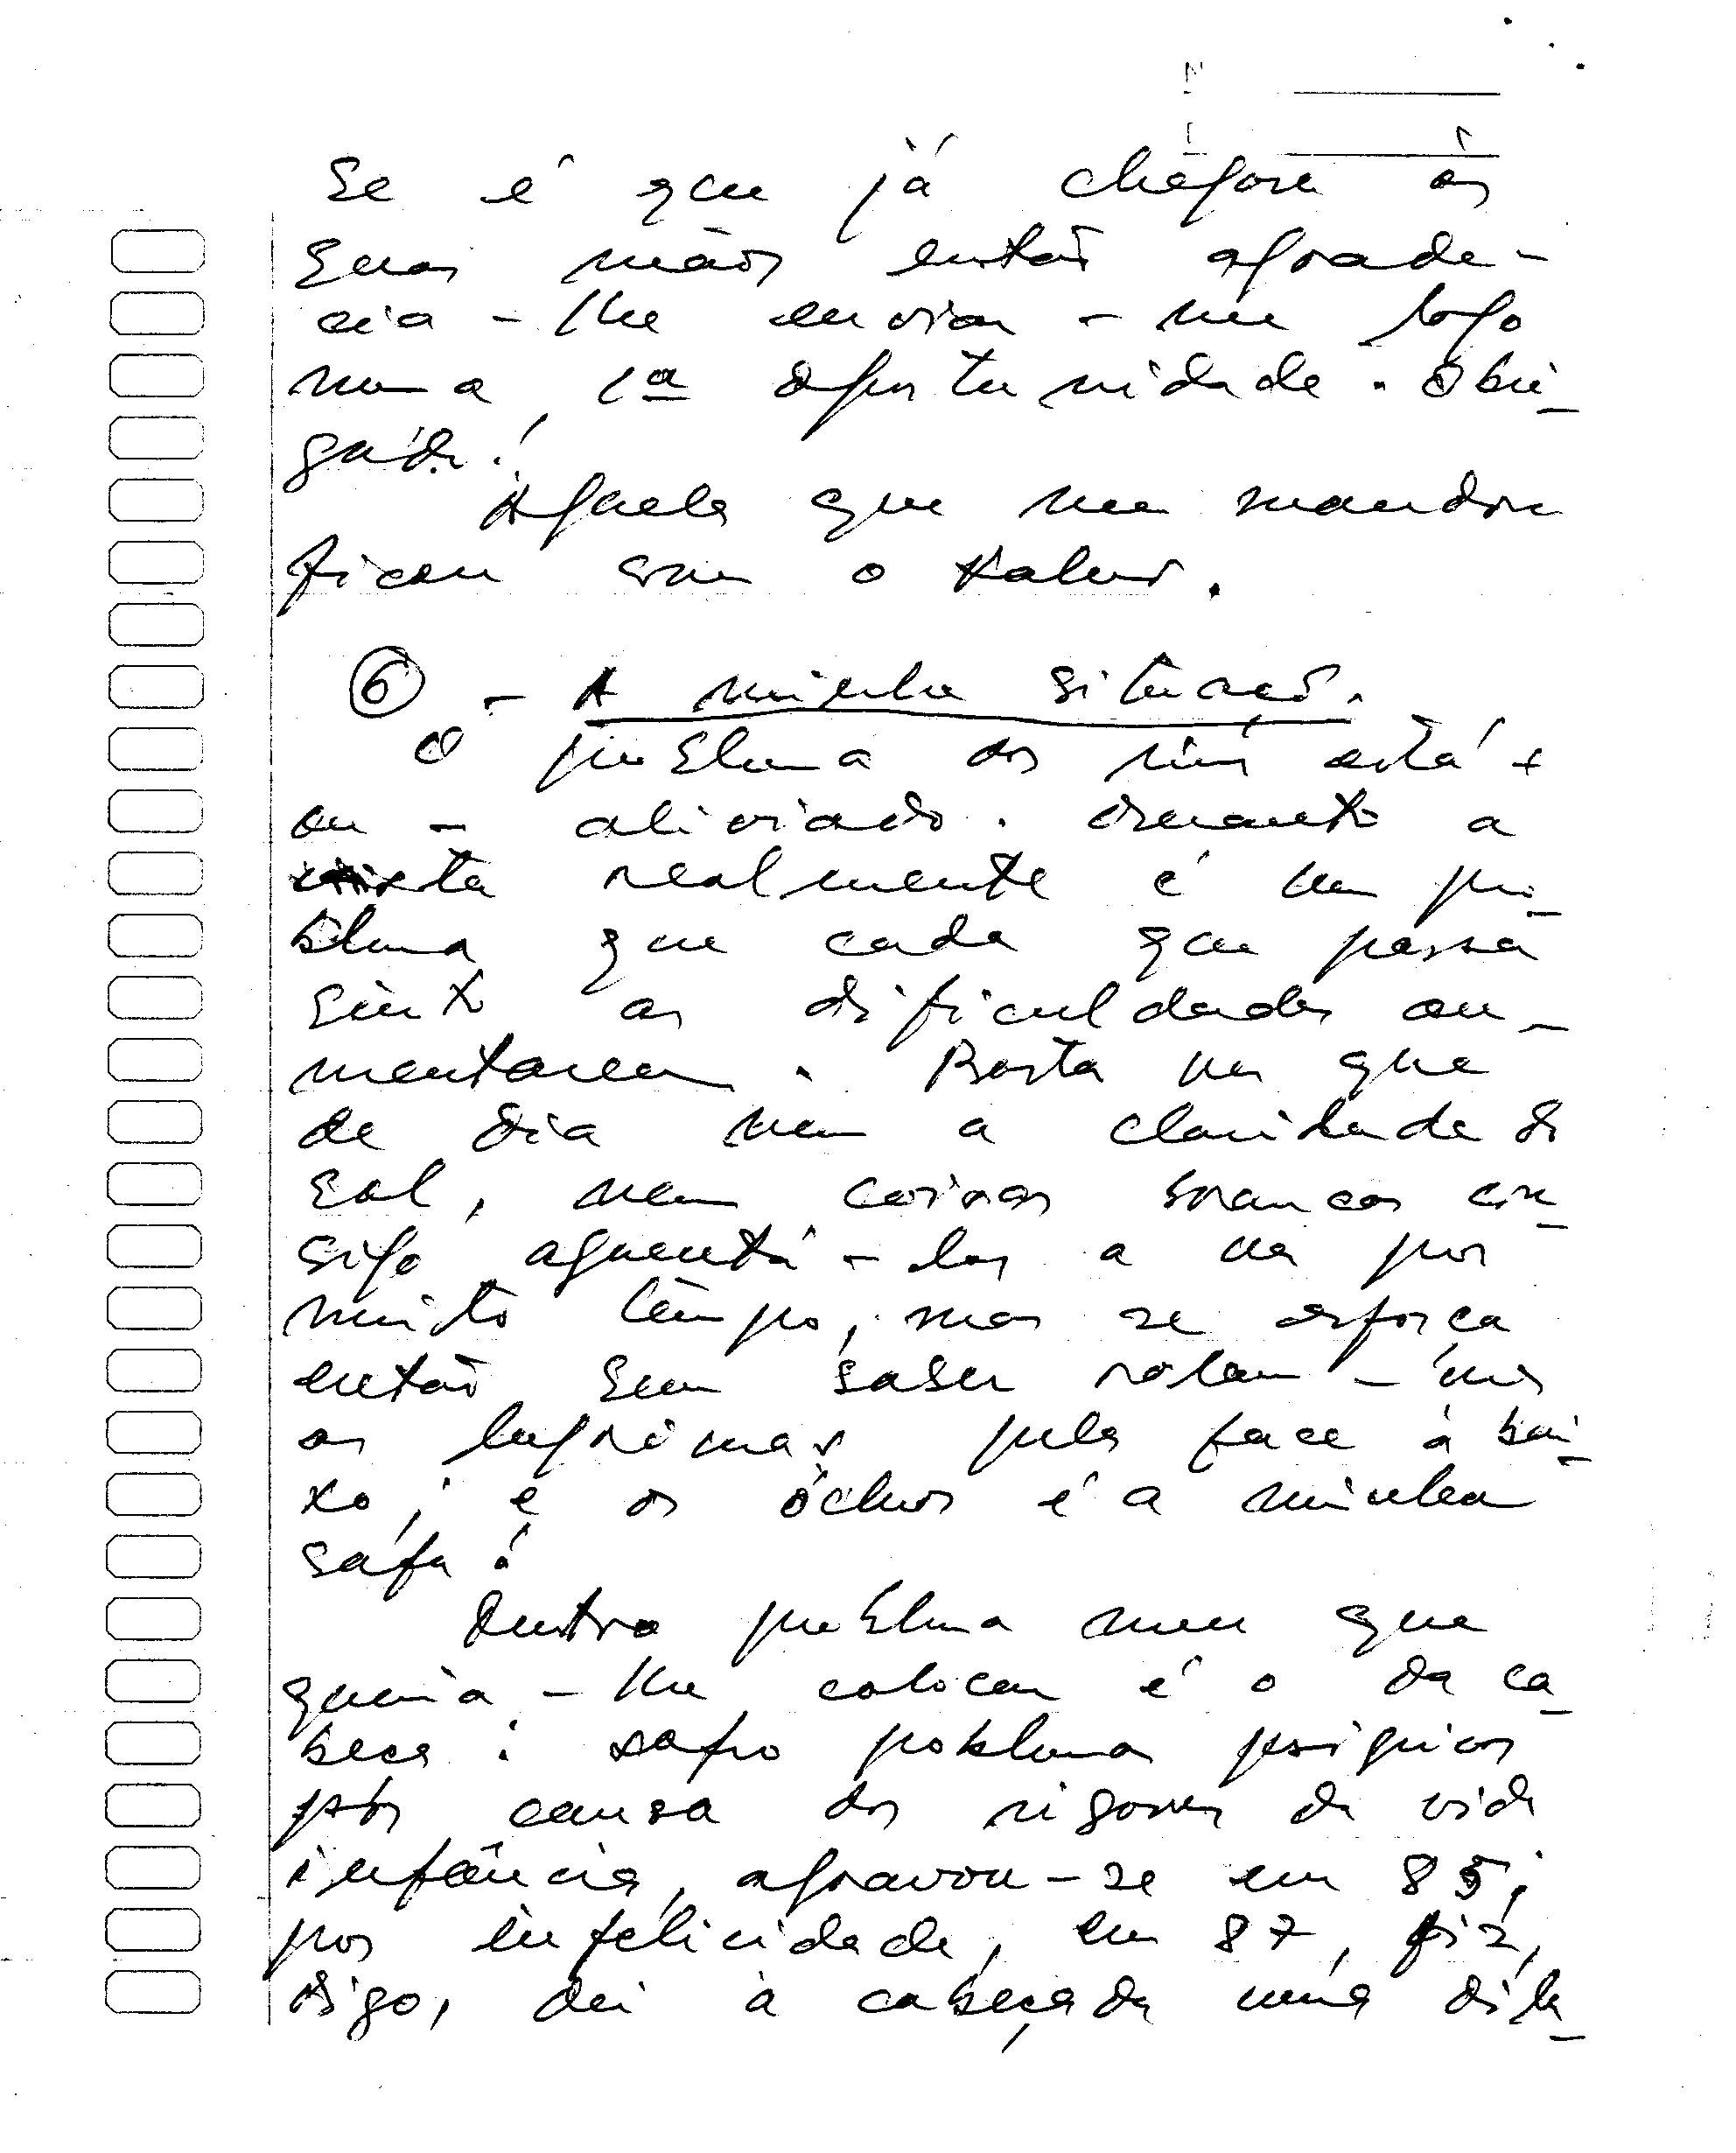 Se é que já chegou às
suas mãos então agrade-
cia-lhe enviar-me logo
numa 1ª oportunidade. Obri-
gado!
Aquela que me mandou
ficou com o
⑥ - A minha situação.
O problema dos rins está +
ou - aliviado. Quanto a
vista realmente é um pro-
blema que cada que passa
sinto as dificuldades au-
mentarem. Basta ver que
de dia nem a claridade do
sol, nem coisas brancas con-
sigo aguentá-las a ver por
muito tempo, mas se esforça
então sem saber rolam-me
as lágrimas pela face à bai-
xo; e os óculos é a minha
safa!
Outro problema meu que
queria-lhe colocar é o da ca-
beça: sofro poblemas psíquicos
por causa dos rigores da vida
infância, agravou-se em 85;
por infelicidade, em 87, fiz,
digo, dei à cabeçada uma